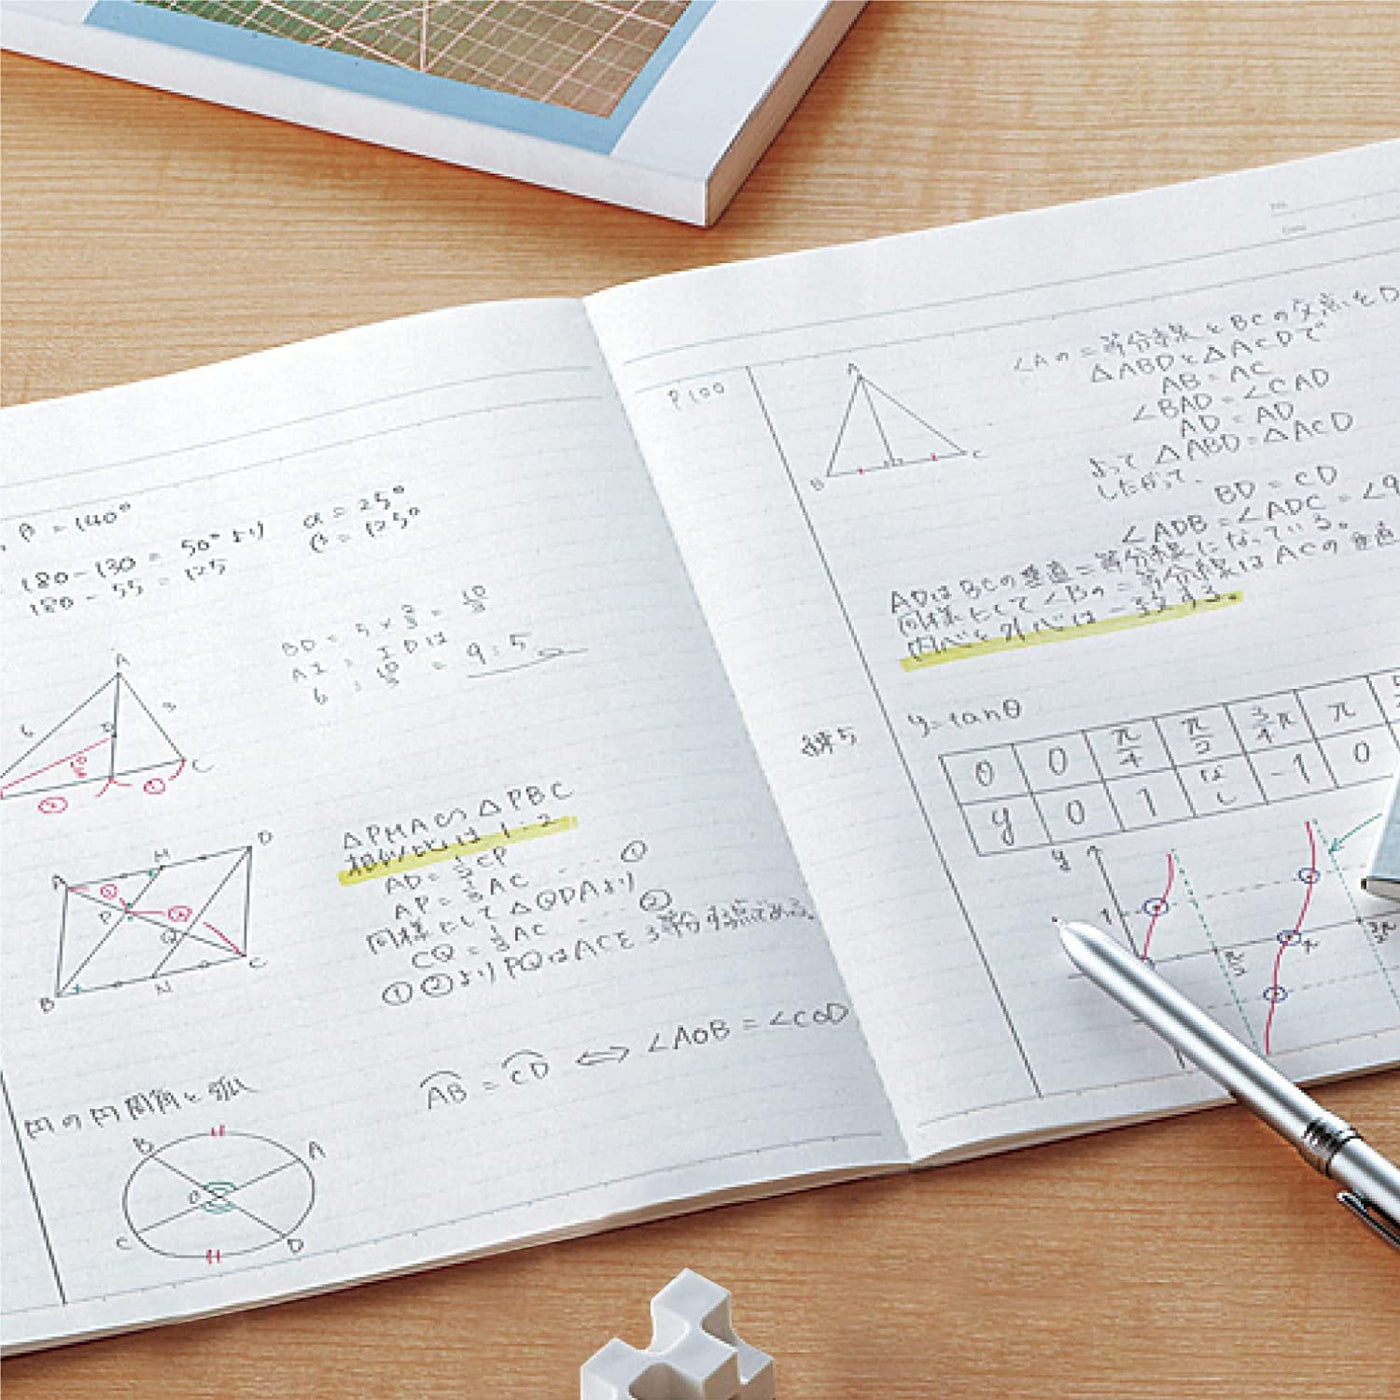 β = 140°
180-130 = 50°より
180 - 55 = 125
α = 25°
β = 125°
BD = 5 ×
AI : IDは
= 9:5
A
6
3
D
C
② ①
△PMAと△PBC
相似比は 1:2
AD = CP
AP = 1/3 AC … ①
同様にして △QDAより
CQ = 1/3 AC … ②
①②より PQはACを3等分する点である。
A M D
①
P ②
Q
B N C
円の円周角と弧
AB = CD ⇔ ∠AOB = ∠COD
B A
O
C D
No.
Date
P100
A
B C
∠Aの二等分線とBCの交点をD
△ABDと△ACDで
AB = AC
∠BAD = ∠CAD
AD = AD
よって △ABD = △ACD
したがって、
BD = CD
∠ADB = ∠ADC = ∠9
ADはBCの垂直二等分線になっている。
同様にして ∠Bの二等分線はACの垂直
内心と外心は一致する。
y = tanθ
θ 0 π/4 π/2 3/4π π
y 0 1 なし -1 0
y
1
π/2 π 3/2π